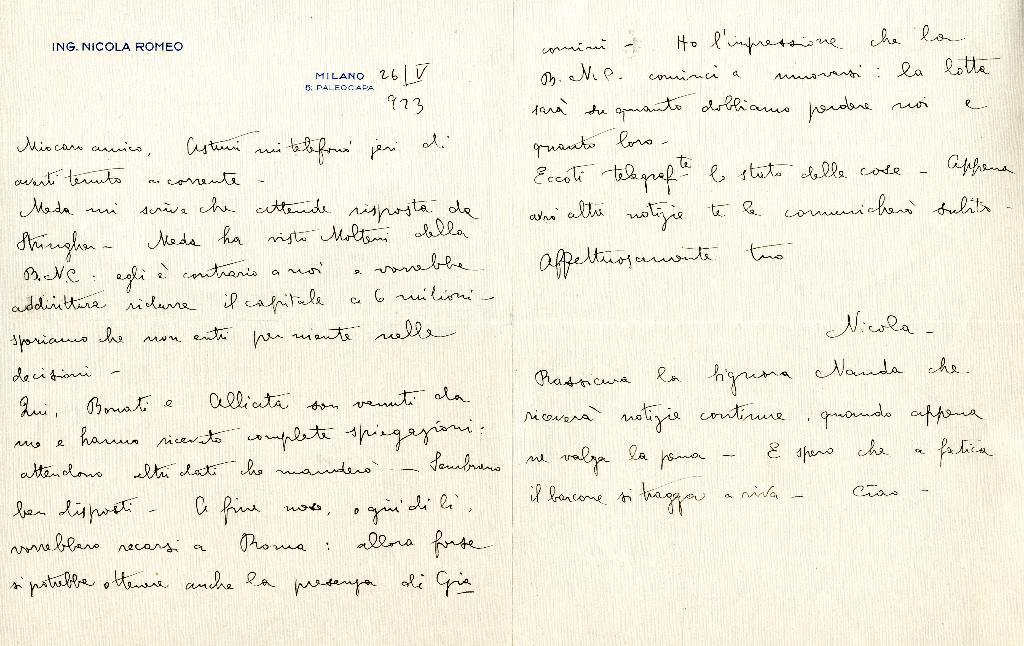 ING. NICOLA ROMEO
MILANO 26/V
5: PALEOCAPA 923
Mio caro amico, Astuni mi telefonò jeri di
averti tenuto a corrente -
Meda mi scrive che attende risposta da
Stringher - Meda ha visto Molteni della
B.N.C: egli è contrario a noi e vorrebbe
addirittura ridurre il capitale a 6 milioni -
speriamo che non entri per niente nelle
decisioni -
Qui, Bonati e Allicata son venuti da
me e hanno ricevuto complete spiegazioni:
attendono altri dati che manderò - Sembrano
ben disposti - A fine mese, o giù di lì,
vorrebbero recarsi a Roma: allora forse
si potrebbe ottenere anche la presenza di Gia
comini - Ho l'impressione che la
B.N.C. cominci a muoversi: la lotta
sarà su quanto dobbiamo perdere noi e
quanto loro -
Eccoti telegraf.te lo stato delle cose - Appena
avrò altre notizie te le comunicherò subito -
Affettuosamente tuo
Nicola -
Rassicura la Signora Nanda che
riceverà notizie continue, quando appena
ne valga la pena - E spero che a fatica
il barcone si tragga a riva - Ciao -